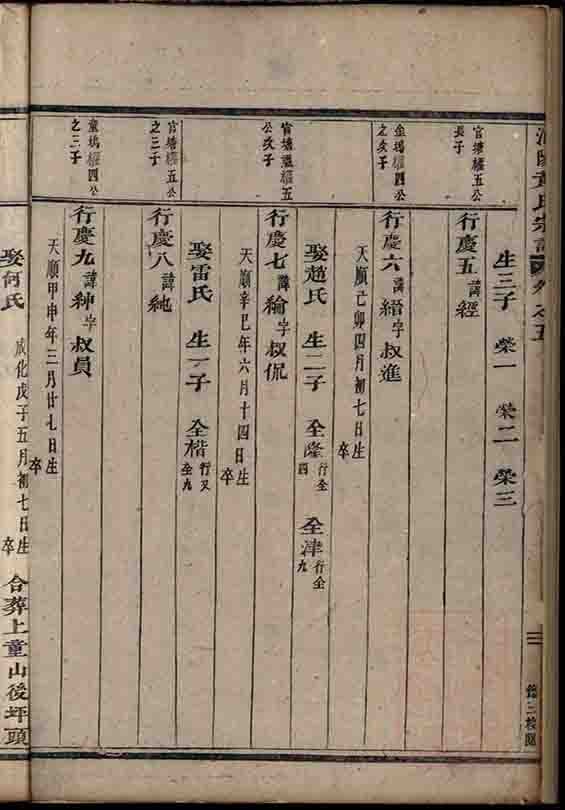 氏宗譜
卷之五
三
生三子 榮一 榮二 榮三
官塘繼五公
長子
行慶五 諱經
金塢繼四公
之次子
行慶六 諱縉 字叔進
天順己卯四月初七日生
卒
娶趙氏 生二子 全隆 行全四 全津 行全九
官塘繼五
公次子
行慶七 諱綸 字叔侃
天順辛巳年六月十四日生
卒
娶雷氏 生一子 全楷 行又全九
官塘繼五公
之三子
行慶八 諱純
童塢繼四公
之三子
行慶九 諱紳 字叔員
天順甲申年三月廿七日生
卒
娶何氏 成化戊子五月初七日生 卒 合葬上童山後坪頭